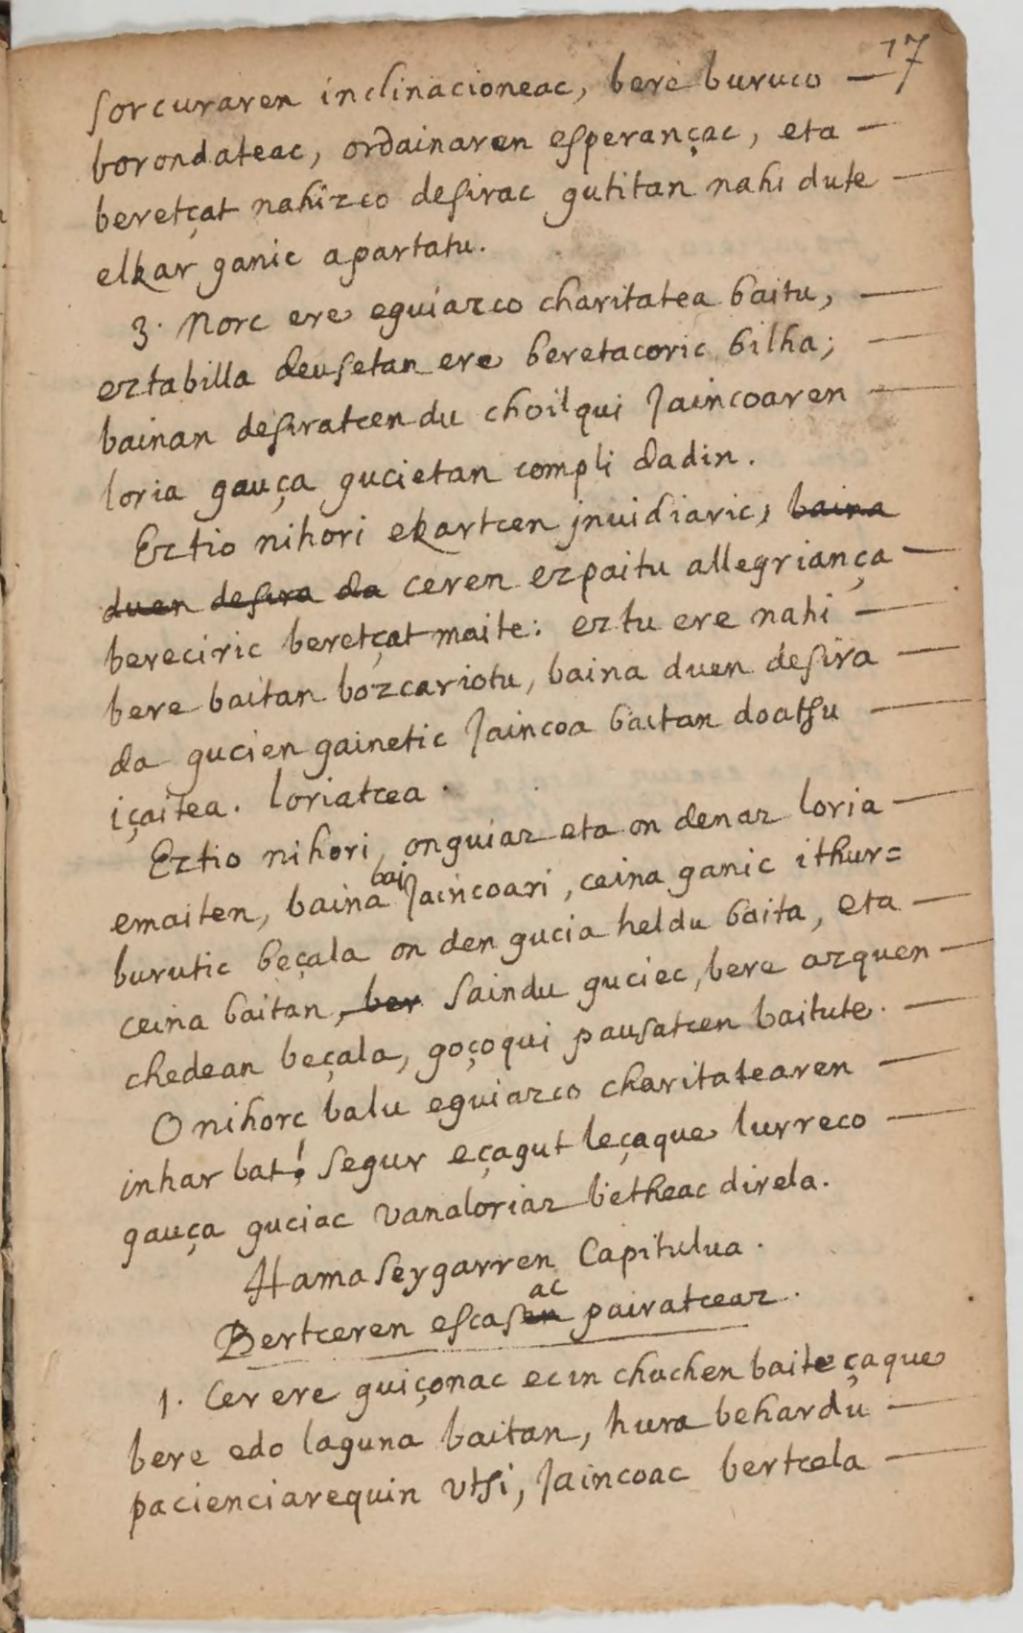 17
sorcuraren inclinacioneac, bere buruco —
borondateac, ordainaren esperançac, eta —
beretçat nahizco desirac gutitan nahi dute —
elkar ganic apartatu.
3. Norc ere eguiazco charitatea baitu, —
eztabilla deusetan ere beretacoric bilha; —
bainan desiratcen du choilqui Jaincoaren —
loria gauça gucietan compli dadin.
Eztio nihori ekartcen jnuidiaric, baina
duen desira da ceren ezpaitu allegriança —
bereciric beretçat maite: eztu ere nahi —
bere baitan bozcariotu, baina duen desira —
da gucien gainetic Jaincoa baitan doatsu —
içaitea. loriatcea.
Eztio nihori, onguiaz eta on denaz loria —
emaiten, baina bai Jaincoari, ceina ganic ithur=
burutic beçala on den gucia heldu baita, eta —
ceina baitan, ber saindu guciec, bere azquen —
chedean beçala, goçoqui pausatcen baitute. —
O nihorc balu eguiazco charitatearen —
inhar bat! segur eçagut leçaque lurreco —
gauça guciac vanaloriaz betheac direla.
Hamaseygarren Capitulua.
Bertceren escasen ac pairatceaz.
1. Cer ere guiçonac ecin chuchen baiteçaque
bere edo laguna baitan, hura behar du —
pacienciarequin vtsi, Jaincoac bertcela —